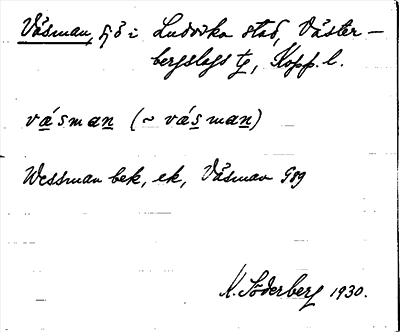 Väsman, sjö i Ludvika stad, Väster–
bergslags tg, Kopp. l.
vásman (~ vásman)
Wessman bek, ek, Väsman G89
N. Söderberg 1930.